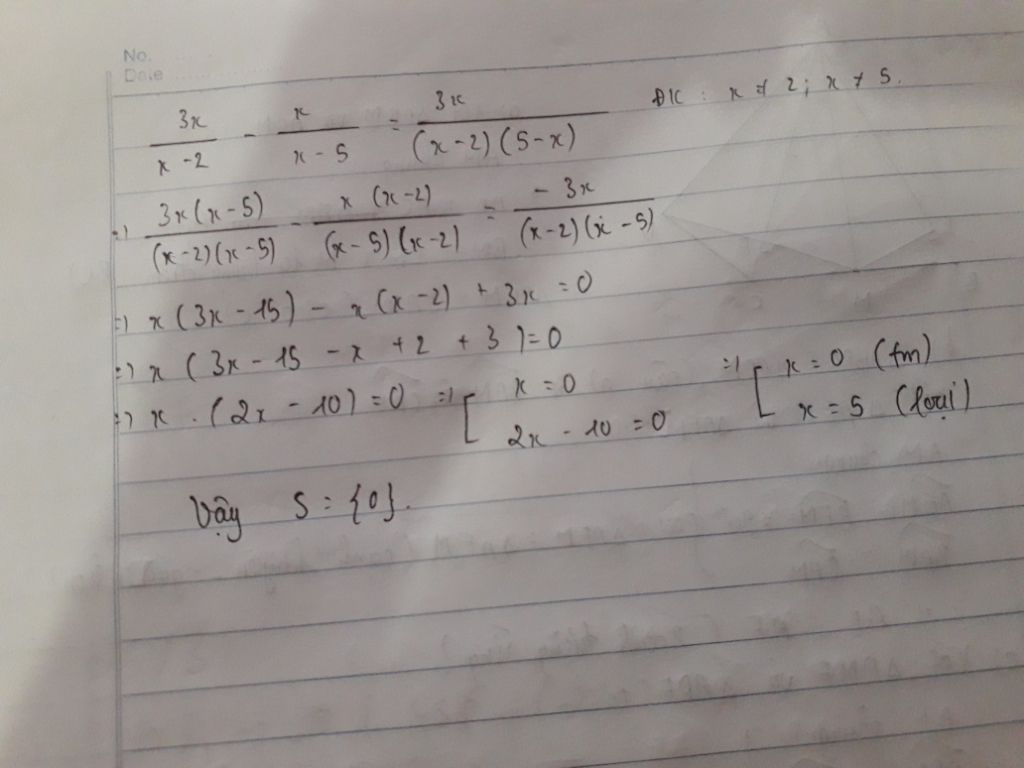 No.
Date
3x/(x-2) - x/(x-5) = 3x/((x-2)(5-x)) ĐK: x ≠ 2; x ≠ 5.
=) 3x(x-5)/((x-2)(x-5)) - x(x-2)/((x-5)(x-2)) = -3x/((x-2)(x-5))
=) x(3x-15) - x(x-2) + 3x = 0
=) x(3x-15-x+2+3)=0
=) x.(2x-10)=0 =) [ x=0 ; 2x-10=0 =) [ x=0 (tm) ; x=5 (loại)
Vậy S={0}.